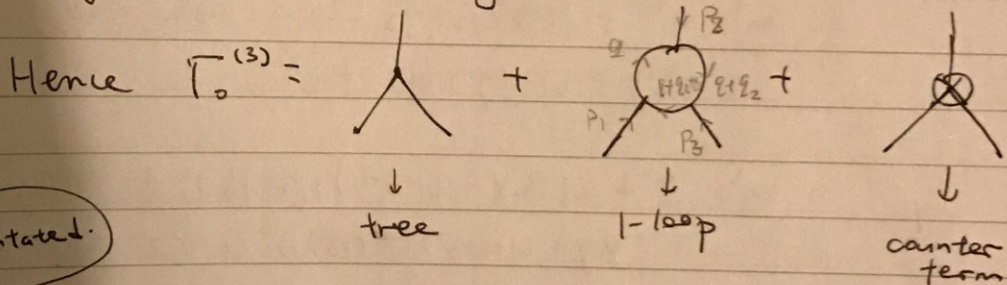 Hence Γ₀⁽³⁾ = + +
q P₂
q+q₂
P₁ P₃
↓ ↓ ↓
tated. tree 1-loop counter
term